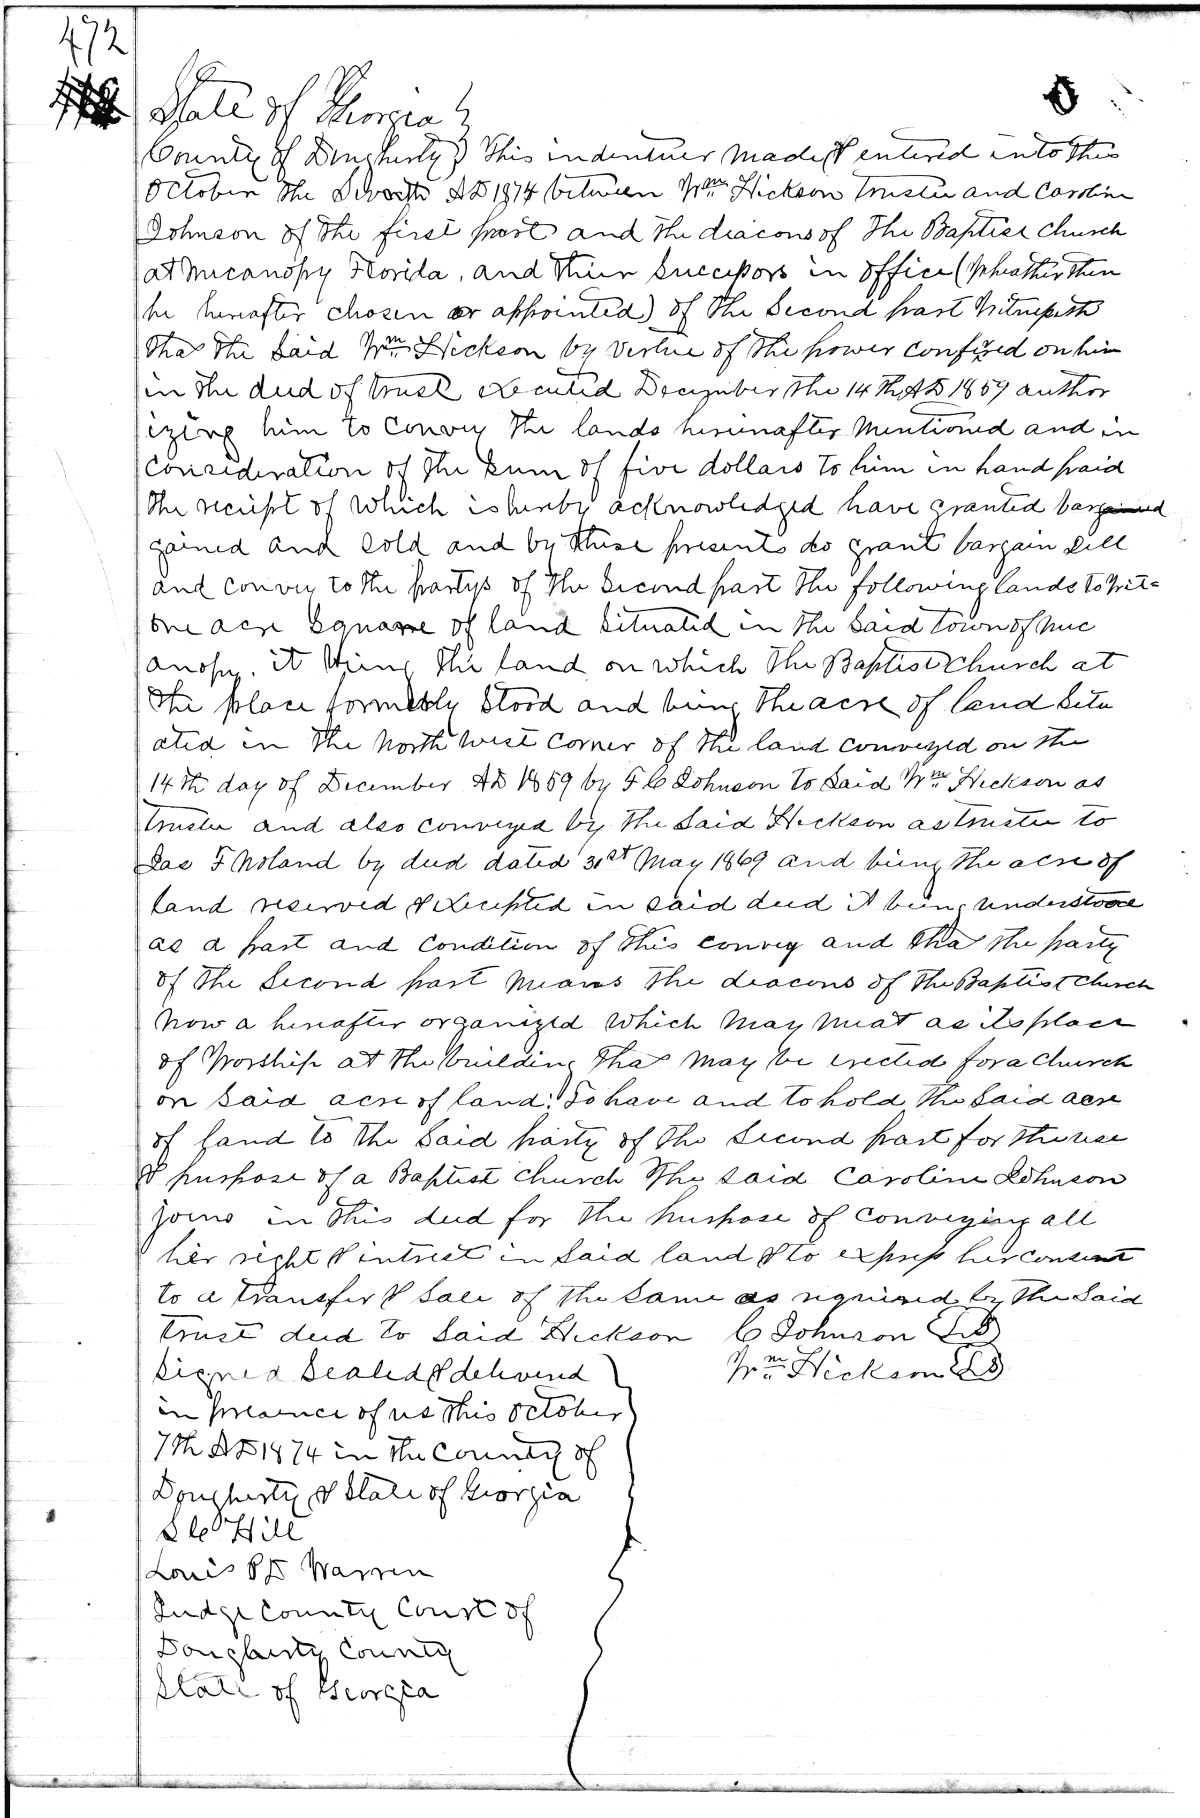 472
State of Georgia }
County of Dougherty } This indentuer made & entered into this
October the Seventh AD 1874 between Wm Hickson trustee and Caroline
Johnson of the first part and the deacons of The Baptist Church
at Micanopy Florida, and their Successors in office (Wheather then
be hereafter chosen or appointed) of the Second part Witnesseth
that the Said Wm Hickson by vertue of the power confired on him
in the deed of trust executed December the 14th AD 1859 author
izing him to Convey the lands hereinafter Mentioned and in
Consideration of the Sum of five dollars to him in hand paid
the reciept of which is hereby acknowledged have granted bargained
gained and Sold and by these presents do grant bargain Sell
and convey to the partys of the Second part the following lands to Wit=
one acre Square of land Situated in the Said town of Mic
anopy. it being the land on which the Baptist Church at
the place formerly Stood and being the acre of land Situ
ated in the North West Corner of the land conveyed on the
14th day of December AD 1859 by F C Johnson to Said Wm Hickson as
trustee and also conveyed by the Said Hickson as trustee to
Jas F Noland by deed dated 31st May 1869 and being the acre of
land reserved & excepted in said deed it being understood
as a part and condition of this convey and that the party
of the Second part Means the deacons of the Baptist Church
Now a hereafter organized Which May Meat as its place
of Worship at the building that May be erected for a Church
on Said acre of land: To have and to hold the Said acre
of land to the Said party of the Second part for the use
& purpose of a Baptist Church The said Caroline Johnson
joins in this deed for the purpose of conveying all
her right & intrest in Said land & to express her consent
to a transfer & Sale of the Same as required by the Said
trust deed to Said Hickson C Johnson LS
Signed Sealed & delivered } Wm Hickson LS
in presence of us this October
7th AD 1874 in the County of
Dougherty & State of Georgia
S C Hill
Louis P D Warren
Judge County Court of
Dougherty County
State of Georgia